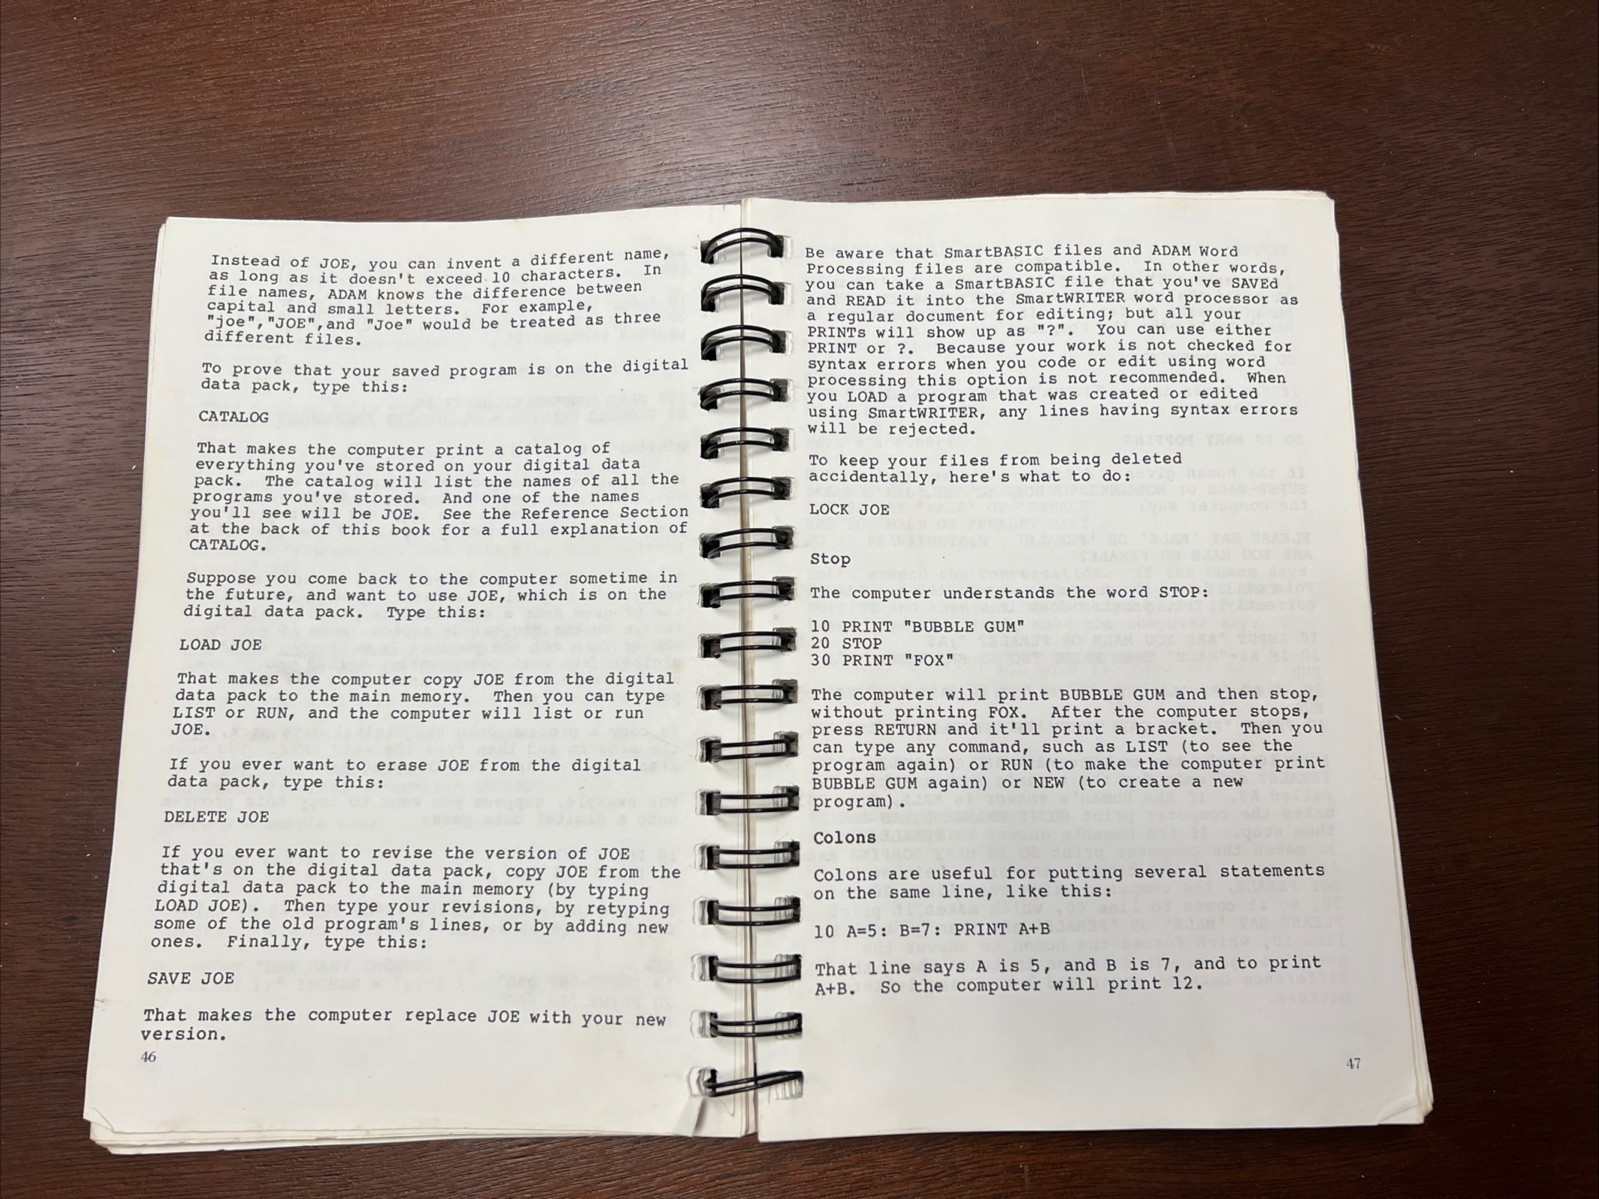 Instead of JOE, you can invent a different name,
as long as it doesn't exceed 10 characters.  In
file names, ADAM knows the difference between
capital and small letters.  For example,
"joe","JOE",and "Joe" would be treated as three
different files.
To prove that your saved program is on the digital
data pack, type this:
CATALOG
That makes the computer print a catalog of
everything you've stored on your digital data
pack.  The catalog will list the names of all the
programs you've stored.  And one of the names
you'll see will be JOE.  See the Reference Section
at the back of this book for a full explanation of
CATALOG.
Suppose you come back to the computer sometime in
the future, and want to use JOE, which is on the
digital data pack.  Type this:
LOAD JOE
That makes the computer copy JOE from the digital
data pack to the main memory.  Then you can type
LIST or RUN, and the computer will list or run
JOE.
If you ever want to erase JOE from the digital
data pack, type this:
DELETE JOE
If you ever want to revise the version of JOE
that's on the digital data pack, copy JOE from the
digital data pack to the main memory (by typing
LOAD JOE).  Then type your revisions, by retyping
some of the old program's lines, or by adding new
ones.  Finally, type this:
SAVE JOE
That makes the computer replace JOE with your new
version.
46
Be aware that SmartBASIC files and ADAM Word
Processing files are compatible.  In other words,
you can take a SmartBASIC file that you've SAVEd
and READ it into the SmartWRITER word processor as
a regular document for editing; but all your
PRINTs will show up as "?".  You can use either
PRINT or ?.  Because your work is not checked for
syntax errors when you code or edit using word
processing this option is not recommended.  When
you LOAD a program that was created or edited
using SmartWRITER, any lines having syntax errors
will be rejected.
To keep your files from being deleted
accidentally, here's what to do:
LOCK JOE
Stop
The computer understands the word STOP:
10 PRINT "BUBBLE GUM"
20 STOP
30 PRINT "FOX"
The computer will print BUBBLE GUM and then stop,
without printing FOX.  After the computer stops,
press RETURN and it'll print a bracket.  Then you
can type any command, such as LIST (to see the
program again) or RUN (to make the computer print
BUBBLE GUM again) or NEW (to create a new
program).
Colons
Colons are useful for putting several statements
on the same line, like this:
10 A=5: B=7: PRINT A+B
That line says A is 5, and B is 7, and to print
A+B.  So the computer will print 12.
47